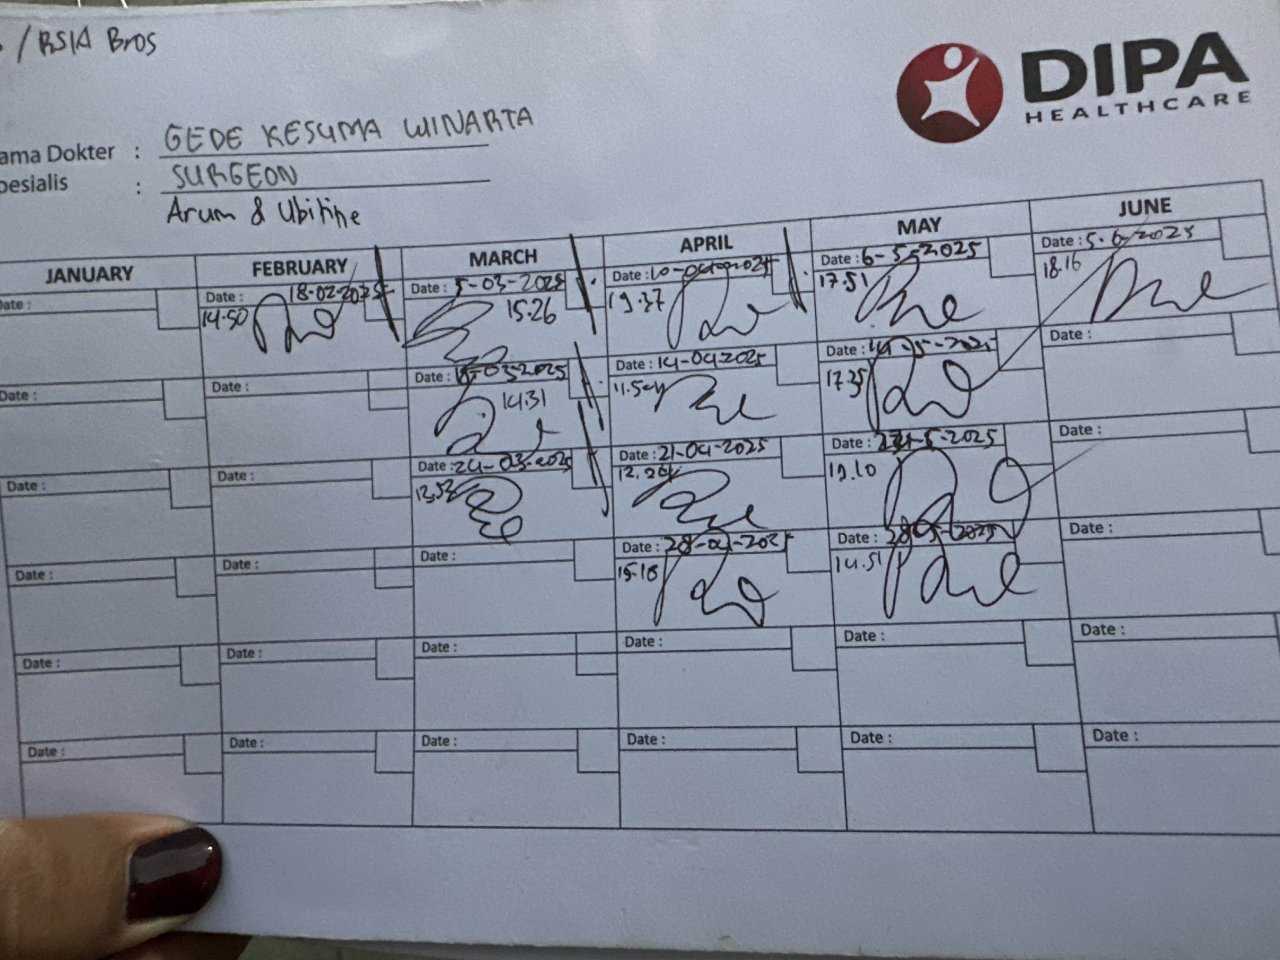 / RSIA Bros
DIPA
HEALTHCARE
ama Dokter : GEDE KESUMA WINARTA
pesialis : SURGEON
Arum & Ubitine
JANUARY FEBRUARY MARCH APRIL MAY JUNE
Date : Date : 18-02-2025 Date : 5-03-2025 Date : 10-04-2025 Date : 6-5-2025 Date : 5-6-2025
14.50 15.26 19.37 17.51 18.16
Date : Date : Date : -03-2025 Date : 14-04-2025 Date : 14-5-2025 Date :
14.31 17.35
Date : Date : Date : 24-03-2025 Date : 21-04-2025 Date : -5-2025 Date :
19.10
Date : Date : Date : Date : 28-04-2025 Date : 28-05-2025 Date :
15.18 14.51
Date : Date : Date : Date : Date : Date :
Date : Date : Date : Date : Date : Date :